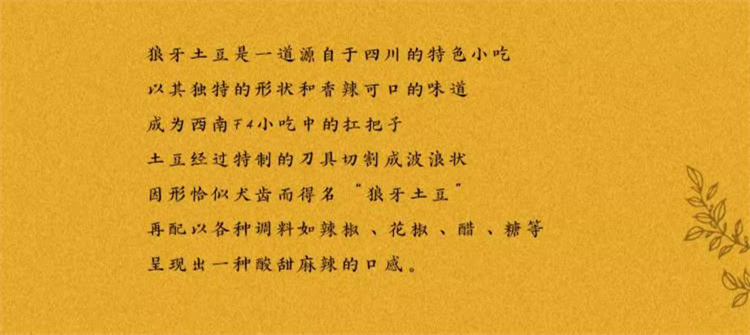 狼牙土豆是一道源自于四川的特色小吃
以其独特的形状和香辣可口的味道
成为西南F4小吃中的扛把子
土豆经过特制的刀具切割成波浪状
因形恰似犬齿而得名“狼牙土豆”
再配以各种调料如辣椒、花椒、醋、糖等
呈现出一种酸甜麻辣的口感。